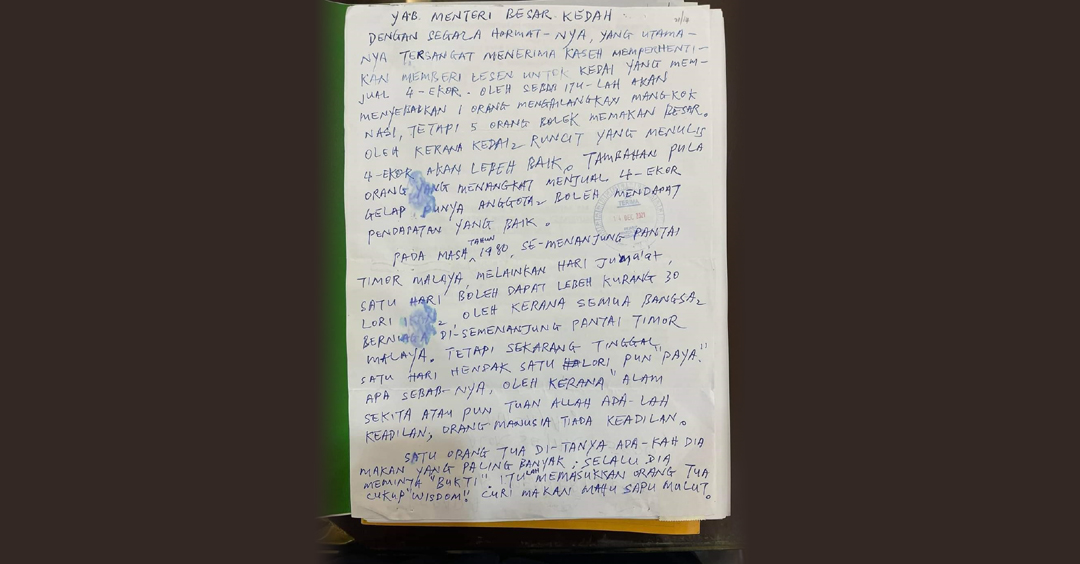 YAB. MENTERI BESAR KEDAH
21/12
DENGAN SEGALA HORMAT-NYA, YANG UTAMA-
NYA TERSANGAT MENERIMA KASEH MEMPERHENTI-
KAN MEMBERI LESEN UNTOK KEDAI YANG MEM-
JUAL 4-EKOR. OLEH SEBAB ITU-LAH AKAN
MENYEBABKAN 1 ORANG MENGHILANGKAN MANGKOK
NASI, TETAPI 5 ORANG BOLEK MEMAKAN BESAR.
OLEH KERANA KEDAI2 RUNCIT YANG MENULIS
4-EKOR AKAN LEBEH BAIK. TAMBAHAN PULA
ORANG YANG MENANGKAT MENJUAL 4-EKOR
GELAP PUNYA ANGGOTA2 BOLEH MENDAPAT
PENDAPATAN YANG BAIK.
PADA MASA TAHUN 1980, SE-MENANJUNG PANTAI
TIMOR MALAYA, MELAINKAN HARI JUMAAT,
SATU HARI BOLEH DAPAT LEBEH KURANG 30
LORI IKAN2, OLEH KERANA SEMUA BANGSA2
BERNIAGA DI-SEMENANJUNG PANTAI TIMOR
MALAYA. TETAPI SEKARANG TINGGAL,
SATU HARI HENDAK SATU LORI PUN PAYA."
APA SEBAB-NYA, OLEH KERANA "ALAM
SEKITA ATAU PUN TUAN ALLAH ADA-LAH
KEADILAN; ORANG MANUSIA TIADA KEADILAN.
SATU ORANG TUA DI-TANYA ADA-KAH DIA
MAKAN YANG PALING BANYAK; SELALU DIA
MEMINTA "BUKTI". ITULAH MEMASUKKAN ORANG TUA
CUKUP "WISDOM!! CURI MAKAN MAHU SAPU MULUT.